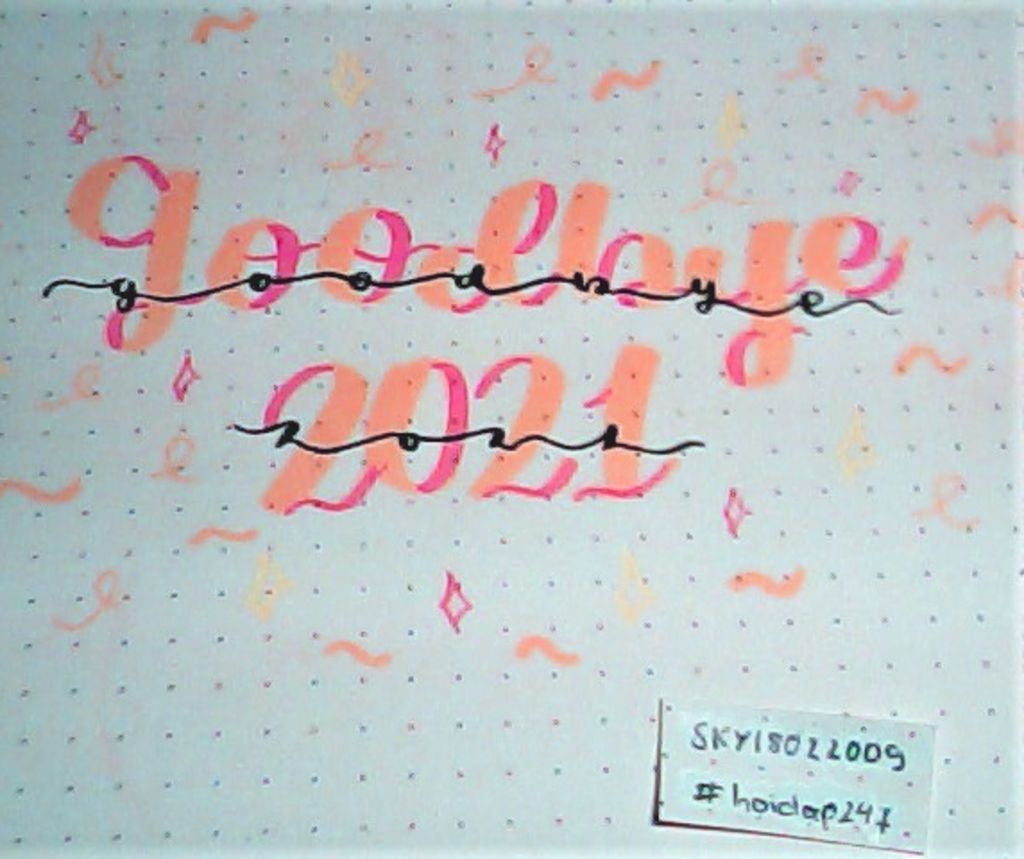 goodbye
goodbye
2021
2021
SKY18022009
#hoidap247